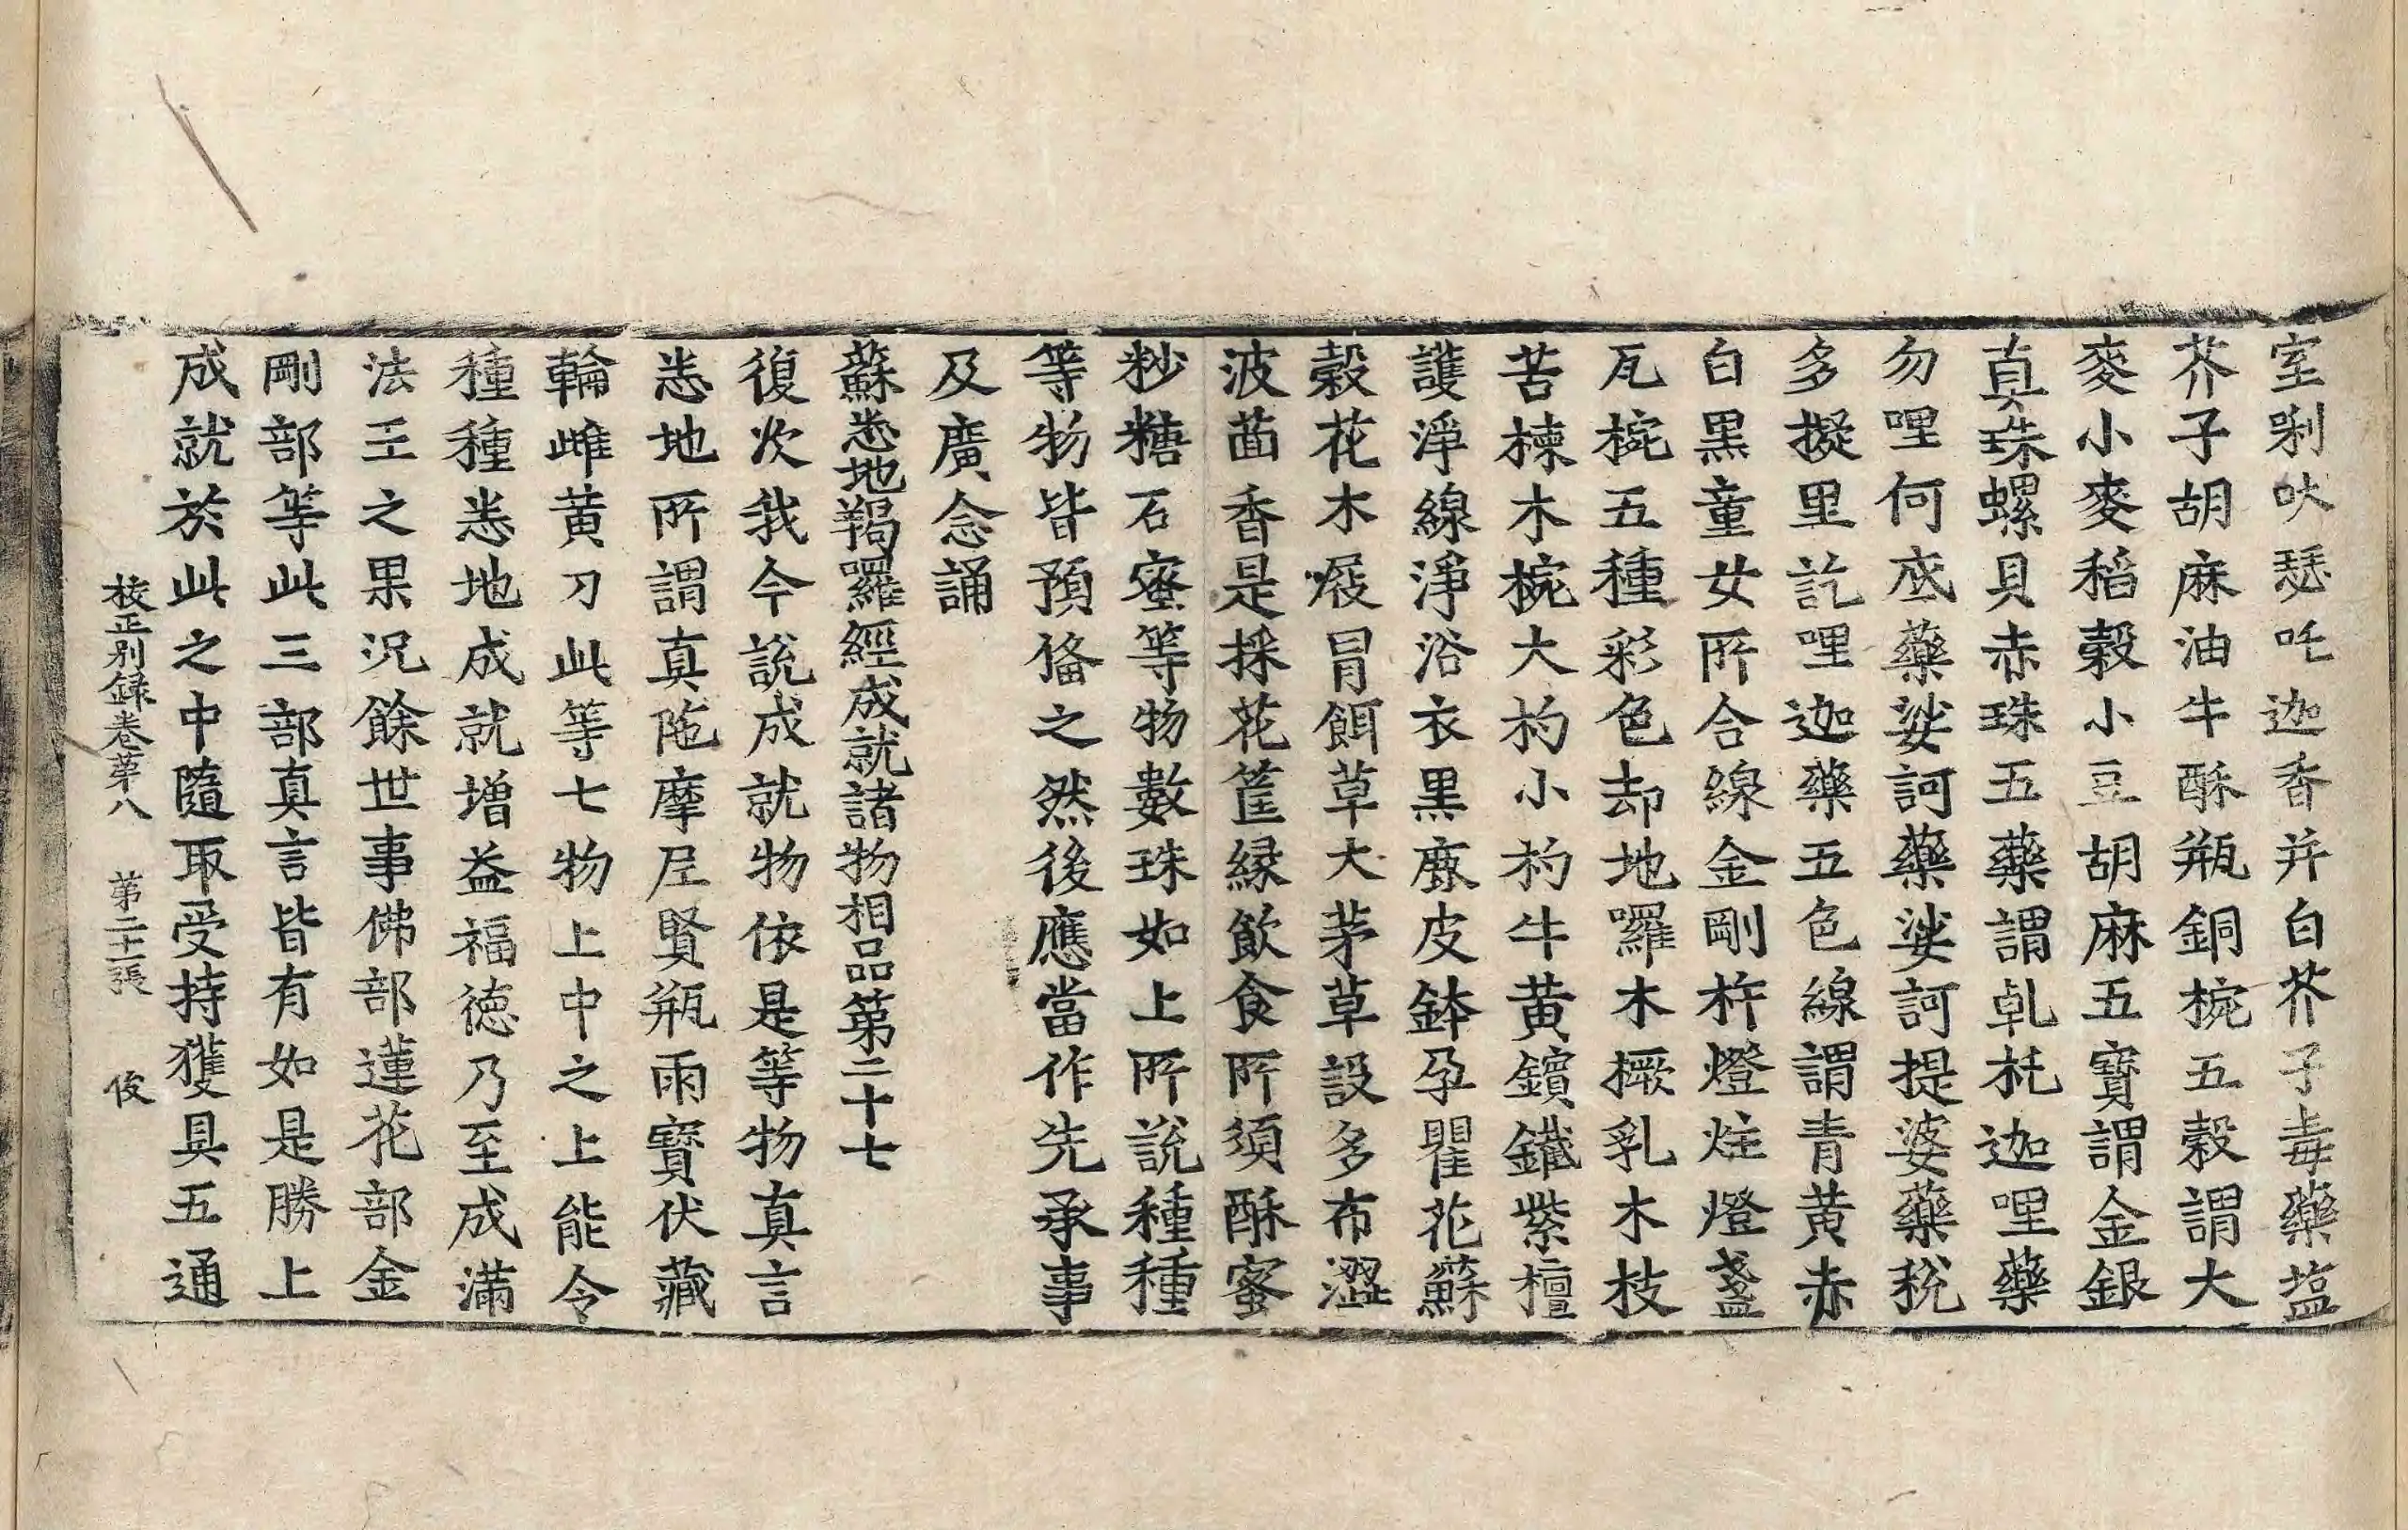 室唎吠瑟吒迦香并白芥子毒藥塩
芥子胡麻油牛酥瓶銅椀五穀謂大
麥小麥稻穀小豆胡麻五寶謂金銀
真珠螺貝赤珠五藥謂乹托迦哩藥
勿哩何底藥娑訶藥娑訶提婆藥稅
多擬里訖哩迦藥五色線謂青黄赤
白黒童女所合線金剛杵燈炷燈盞
瓦椀五種彩色却地羅木橛乳木枝
苦楝木椀大杓小杓牛黄鑌鐵紫檀
護淨線淨浴衣黒鹿皮鉢孕瞿花蘇
穀花木屐冒餌草大茅草設多布澀
波茴香是採花筐縁飲食所須酥蜜
粆糖石蜜等物數珠如上所說種種
等物皆預俻之然後應當作先承事
及廣念誦
蘇悉地羯羅經成就諸物相品第二十七
復次我今說成就物依是等物真言
悉地所謂真陁摩尼賢瓶雨寳伏藏
輪雌黄刀此等七物上中之上能令
種種悉地成就增益福德乃至成滿
法王之果況餘世事佛部蓮花部金
剛部等此三部真言皆有如是勝上
成就於此之中隨取受持獲具五通
校正別録卷苐八　苐二十二張　俊